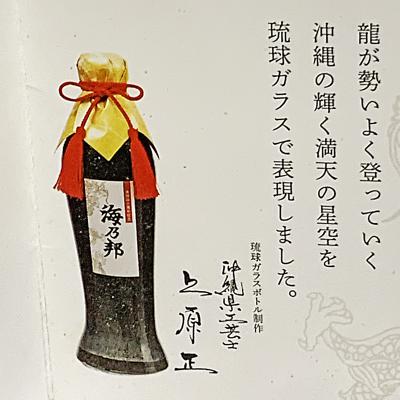 龍が勢いよく登っていく
沖縄の輝く満天の星空を
琉球ガラスで表現しました。
琉球ガラスボトル制作
沖縄県工芸士
上原 正
海乃邦